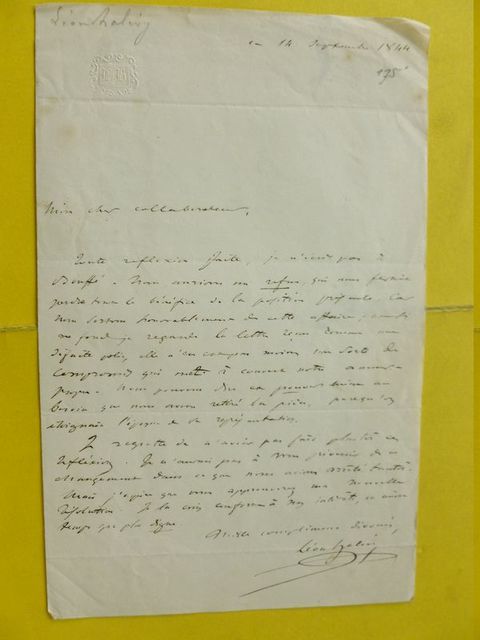 Léon Halévy
ce 14 Septembre 1844
Mon cher collaborateur,
Toute réflexion faite, je n'écris pas à
Bouffé. Nous aurions un refus, qui nous ferait
perdre tout le bénéfice de la position présente, car
nous sortons honorablement de cette affaire;
au fond je regarde la lettre comme une
défaite polie, elle n'en est pas moins une sorte de
compromis qui met à couvert notre amour
propre. Nous pouvons dire et prouver même au
besoin que nous avons retiré la pièce, parce qu'on
éloignait l'époque de la représentation.
Je regrette de n'avoir pas fait plutôt ces
réflexions. Je n'aurais pas à vous prévenir de ce
changement dans ce que nous avions arrêté tantôt.
Mais j'espère que vous approuverez ma nouvelle
résolution. Je la crois conforme à nos intérêts, en même
temps que plus digne
Mille compliments dévoués,
Léon Halévy